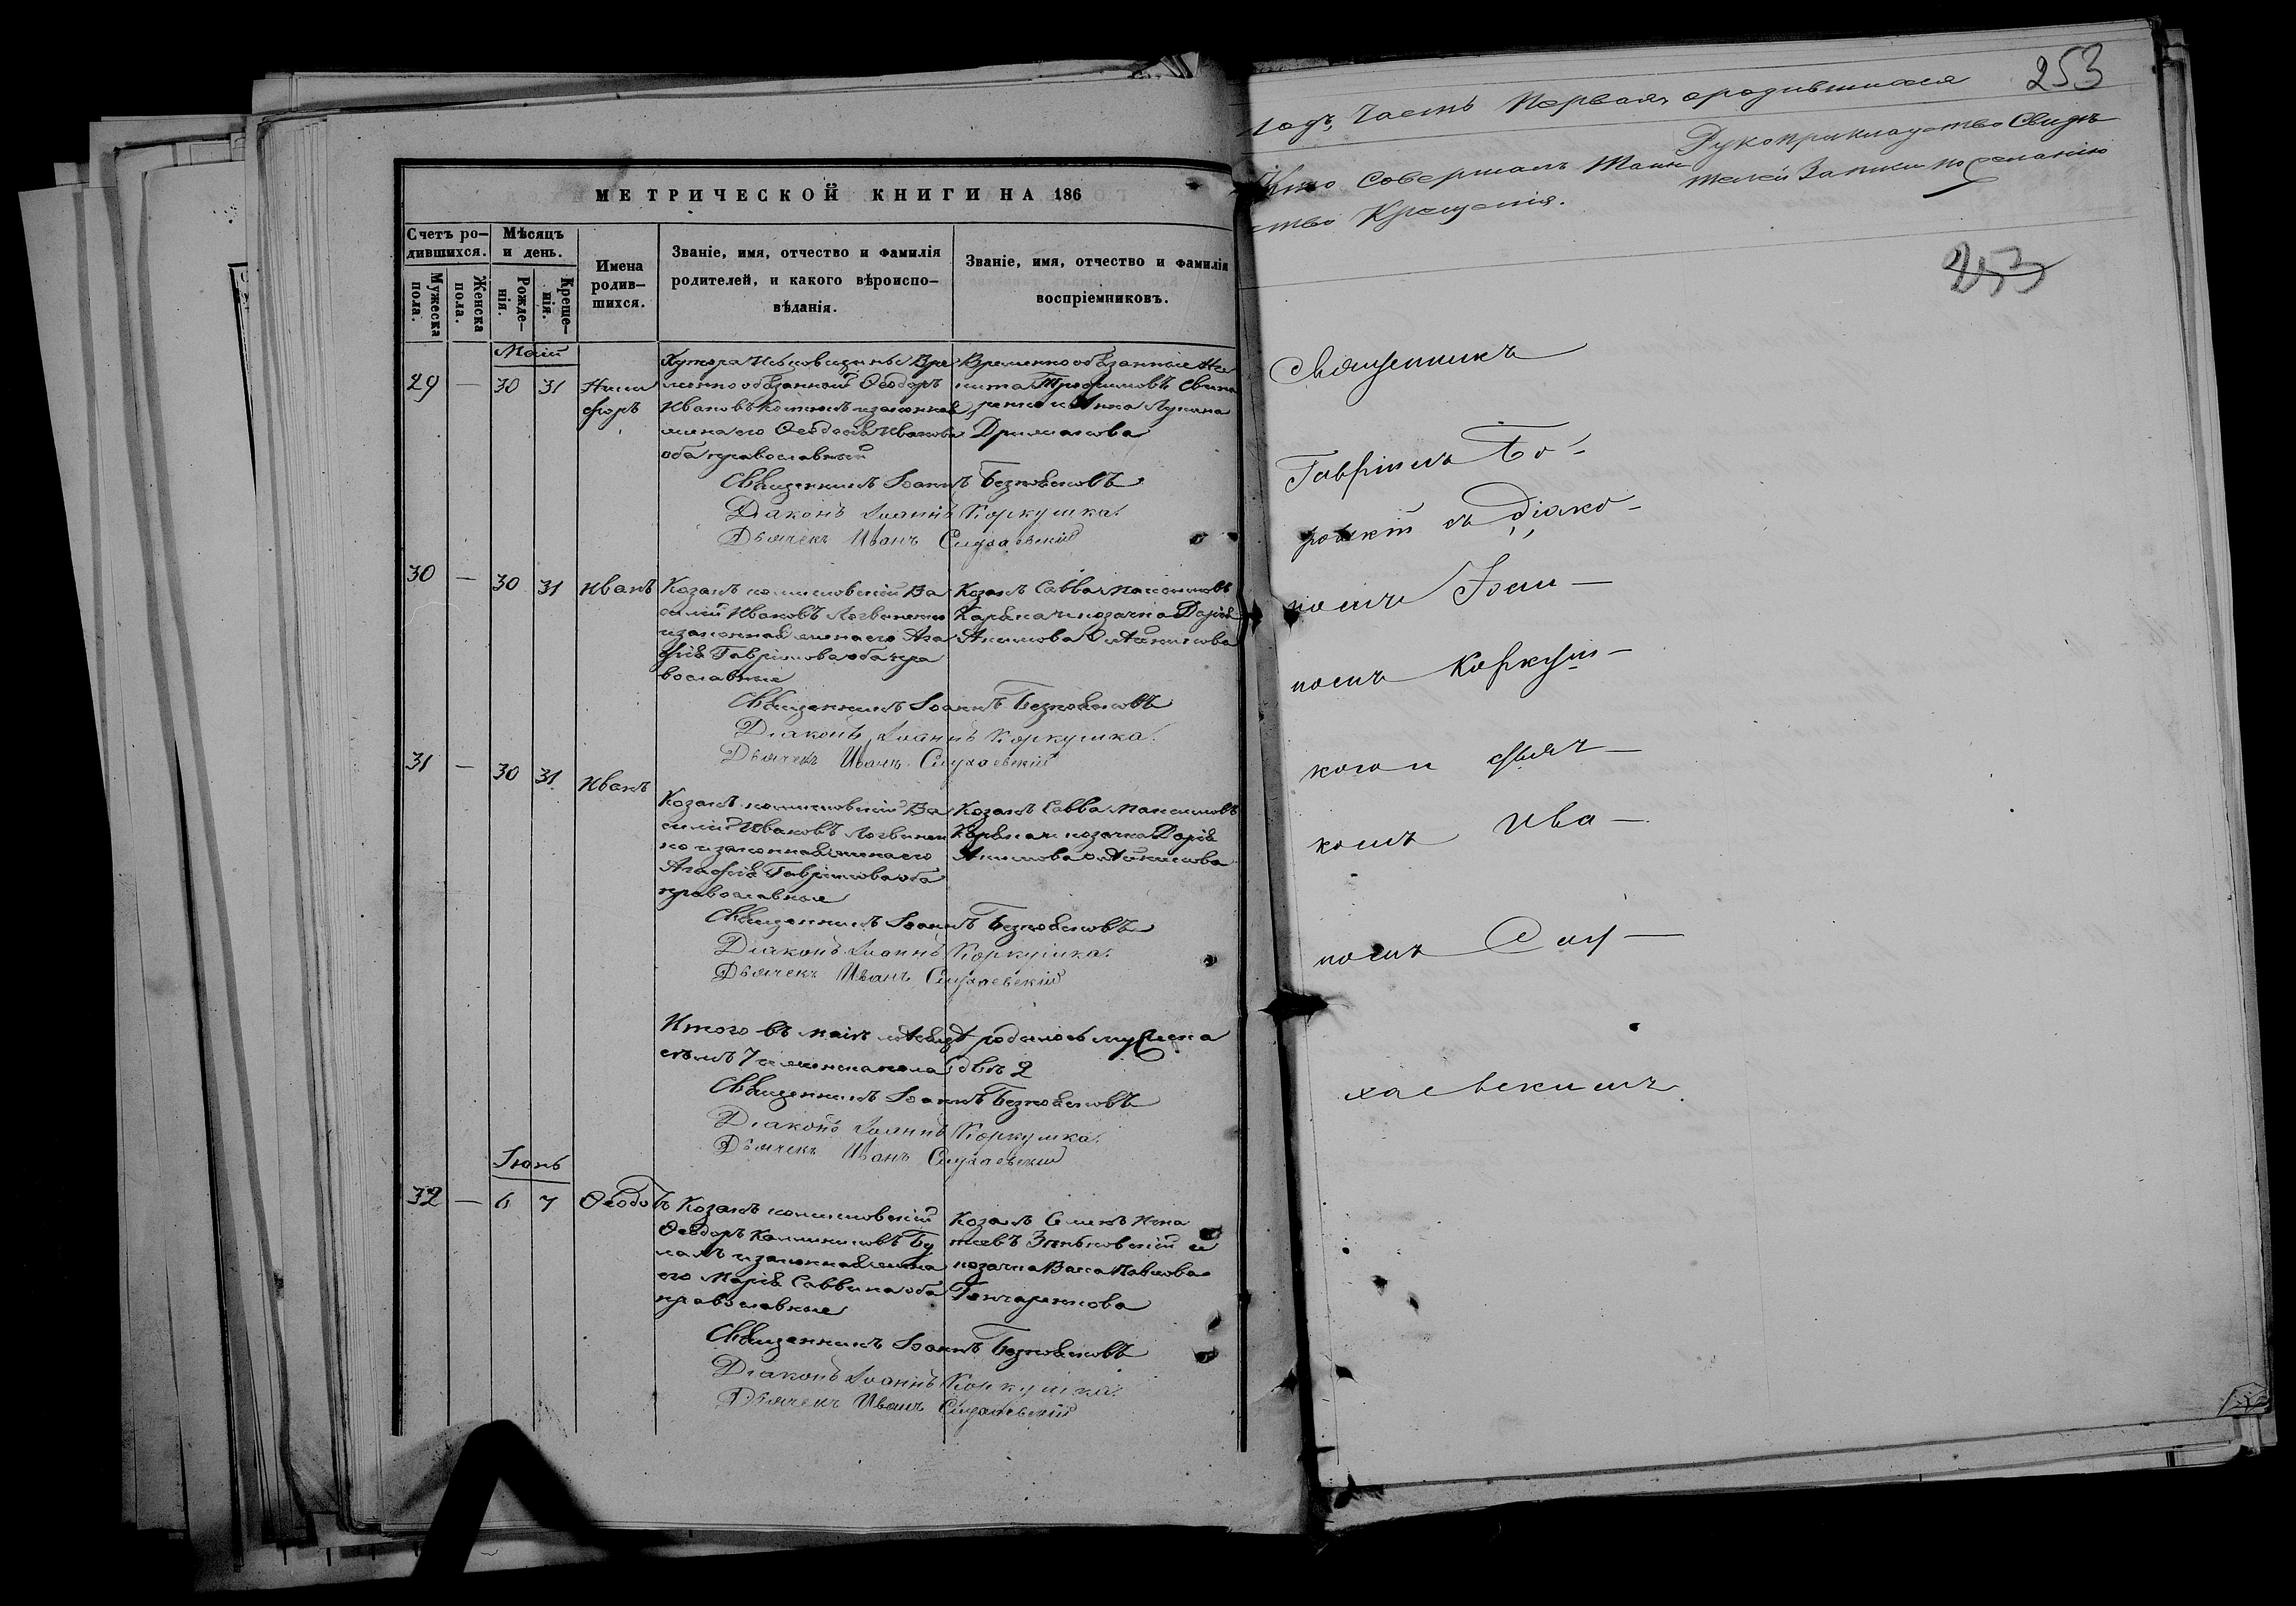 МЕТРИЧЕСКОЙ КНИГИ НА 186
Счетъ ро-
дившихся.
Мужеска
пола.
Женска
пола.
Мѣсяцъ
и день.
Рожде-
нія.
Креще-
нія.
Имена
родив-
шихся.
Званіе, имя, отчество и фамилія
родителей, и какого вѣроиспо-
вѣданія.
Званіе, имя, отчество и фамилія
воспріемниковъ.
Маій
29 — 30 31 Ники
форъ
Хутора Вре
менно обязанный Ѳеодоръ
Ивановъ и законная
жена его Ѳеодосія Иванова
оба православный
Временно обязанные Ни
кита Трофимовъ
и Анна Лукина
Священникъ Іоаннъ
Діаконъ Іоаннъ Коркушка.
Дьячекъ Иванъ Слухаевскій
30 — 30 31 Иванъ
Козакъ Ва
силій Ивановъ Логвиненко
и законная жена его Ага
фія Гаврілова оба пра
вославные
Козакъ Савва Максимовъ
и козачка Дарія
Акимова
Священникъ Іоаннъ
Діаконъ Іоаннъ Коркушка.
Дьячекъ Иванъ Слухаевскій
31 — 30 31 Иванъ
Козакъ Ва
силій Ивановъ Логвинен
ко и законная жена его
Агафія Гаврілова оба
православные
Козакъ Савва Максимовъ
и козачка Дарія
Акимова
Священникъ Іоаннъ
Діаконъ Іоаннъ Коркушка.
Дьячекъ Иванъ Слухаевскій
Итого въ маіѣ мѣсяцѣ родилось мужеска
семь 7 и женска пола двѣ 2
Священникъ Іоаннъ
Діаконъ Іоаннъ Коркушка.
Дьячекъ Иванъ Слухаевскій
Іюнь
32 — 6 7 Ѳеодоръ
Козакъ
Ѳеодоръ
и законная жена
его Марія Саввина оба
православные
Козакъ Семенъ Игна
тіевъ Зѣньковскій и
козачка Васса Павлова
Гончаренкова
Священникъ Іоаннъ
Діаконъ Іоаннъ Коркушка.
Дьячекъ Иванъ Слухаевскій
253
годъ, Часть Первая о родившихся
Кто совершалъ Таин
ство Крещенія.
Рукоприкладство Свидѣ
телей Записи по желанію
253
Священникъ
Гавріилъ Бо-
съ Діако-
номъ Іоан—
номъ Коркуш—
кою и Дьяч—
комъ Ива—
номъ Слу—
хаевскимъ